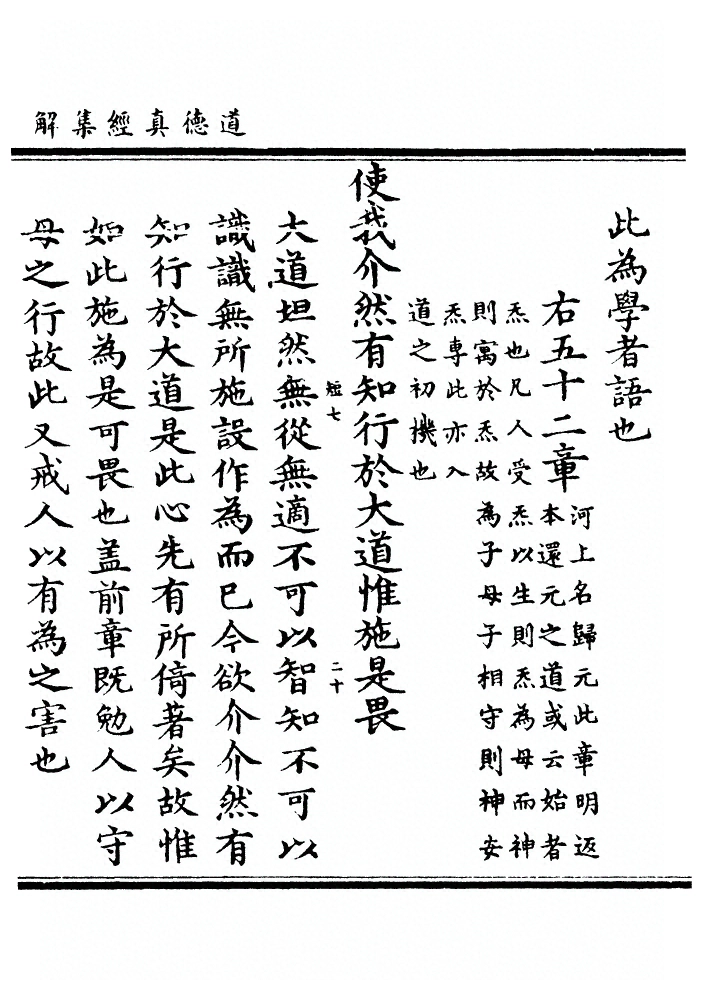 道德真經集解
此為學者語也
右五十二章
河上名歸元此章明返
本還元之道或云始者
炁也凡人受炁以生則炁為母而神
則寓於炁故為子母子相守則神安
炁專此亦入
道之初機也
使我介然有知行於大道惟施是畏
短七
二十
大道坦然無從無適不可以智知不可以
識識無所施設作為而已今欲介介然有
知行於大道是此心先有所倚著矣故惟
如此施為是可畏也盖前章既勉人以守
母之行故此又戒人以有為之害也